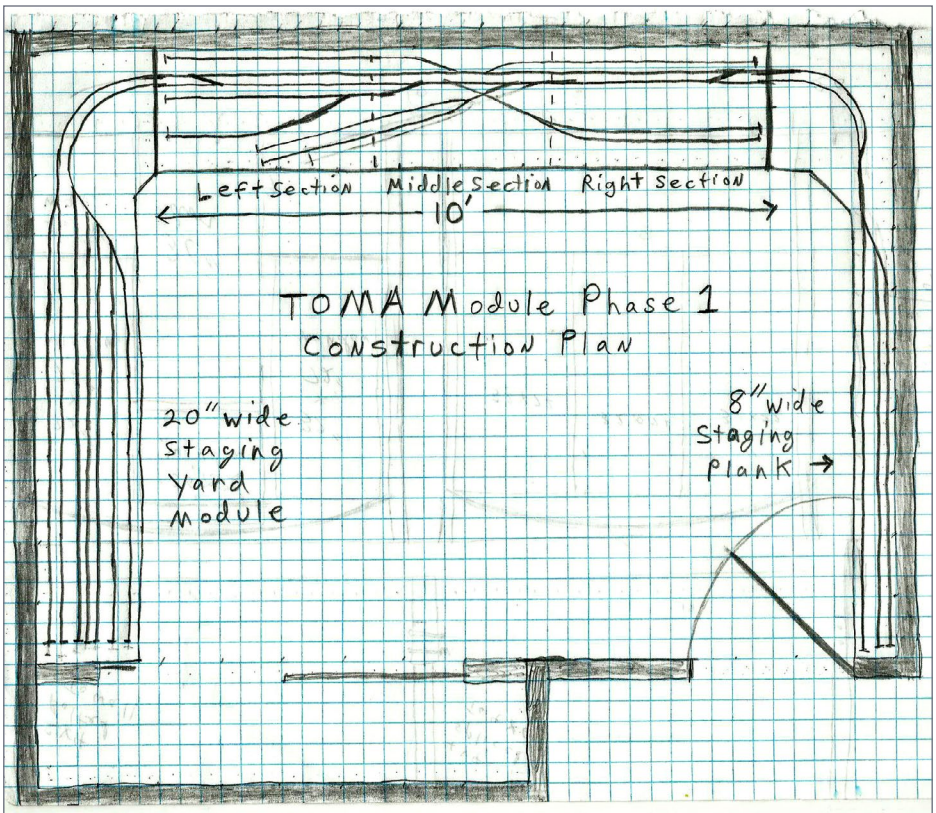 Left Section Middle Section Right Section
10'
TOMA Module Phase 1
Construction Plan
20" wide
Staging
Yard
Module
8" wide
Staging
Plank →